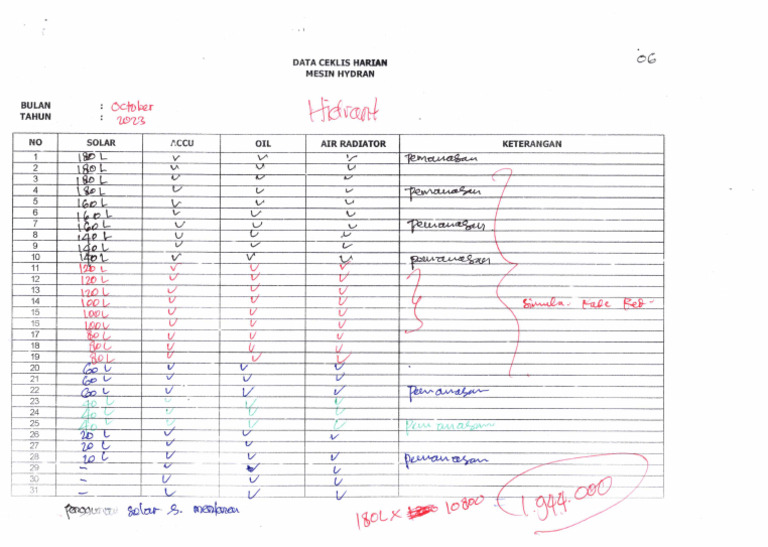 06
DATA CEKLIS HARIAN
MESIN HYDRAN
BULAN : October
Hidrant
TAHUN : 2023
NO SOLAR ACCU OIL AIR RADIATOR KETERANGAN
1 180 L ✓ ✓ ✓ Pemanasan
2 180 L ✓ ✓ ✓
3 180 L ✓ ✓ ✓
4 180 L ✓ ✓ ✓ Pemanasan
5 160 L ✓ ✓ ✓
6 160 L ✓ ✓ ✓
7 160 L ✓ ✓ ✓ Pemanasan
8 140 L ✓ ✓ ✓
9 140 L ✓ ✓ ✓
10 140 L ✓ ✓ ✓ pemanasan
11 120 L ✓ ✓ ✓
12 120 L ✓ ✓ ✓
13 120 L ✓ ✓ ✓
14 100 L ✓ ✓ ✓
15 100 L ✓ ✓ ✓
16 100 L ✓ ✓ ✓
17 80 L ✓ ✓ ✓
18 80 L ✓ ✓ ✓
19 80 L ✓ ✓ ✓
20 60 L ✓ ✓ ✓
21 60 L ✓ ✓ ✓
22 60 L ✓ ✓ ✓ Pemanasan
23 40 L ✓ ✓ ✓
24 40 L ✓ ✓ ✓
25 40 L ✓ ✓ ✓ Pemanasan
26 20 L ✓ ✓ ✓
27 20 L ✓ ✓ ✓
28 20 L ✓ ✓ ✓ Pemanasan
29 - ✓ ✓ ✓
30 - ✓ ✓ ✓
31 - ✓ ✓ ✓
solar
180L X 10800
1.944.000